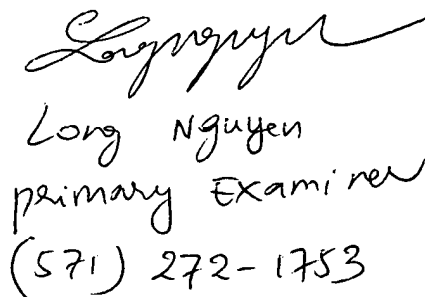 Longnguyen
Long Nguyen
primary Examiner
(571) 272-1753